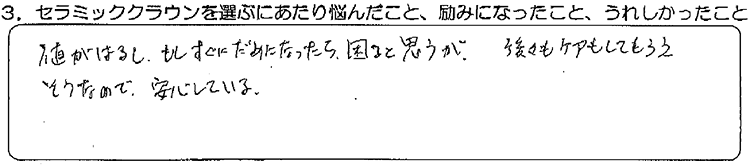 3．セラミッククラウンを選ぶにあたり悩んだこと、励みになったこと、うれしかったこと
値がはるし、もしすぐにだめになったら、困ると思うが、後々もケアもしてもらえ
そうなので、安心している。